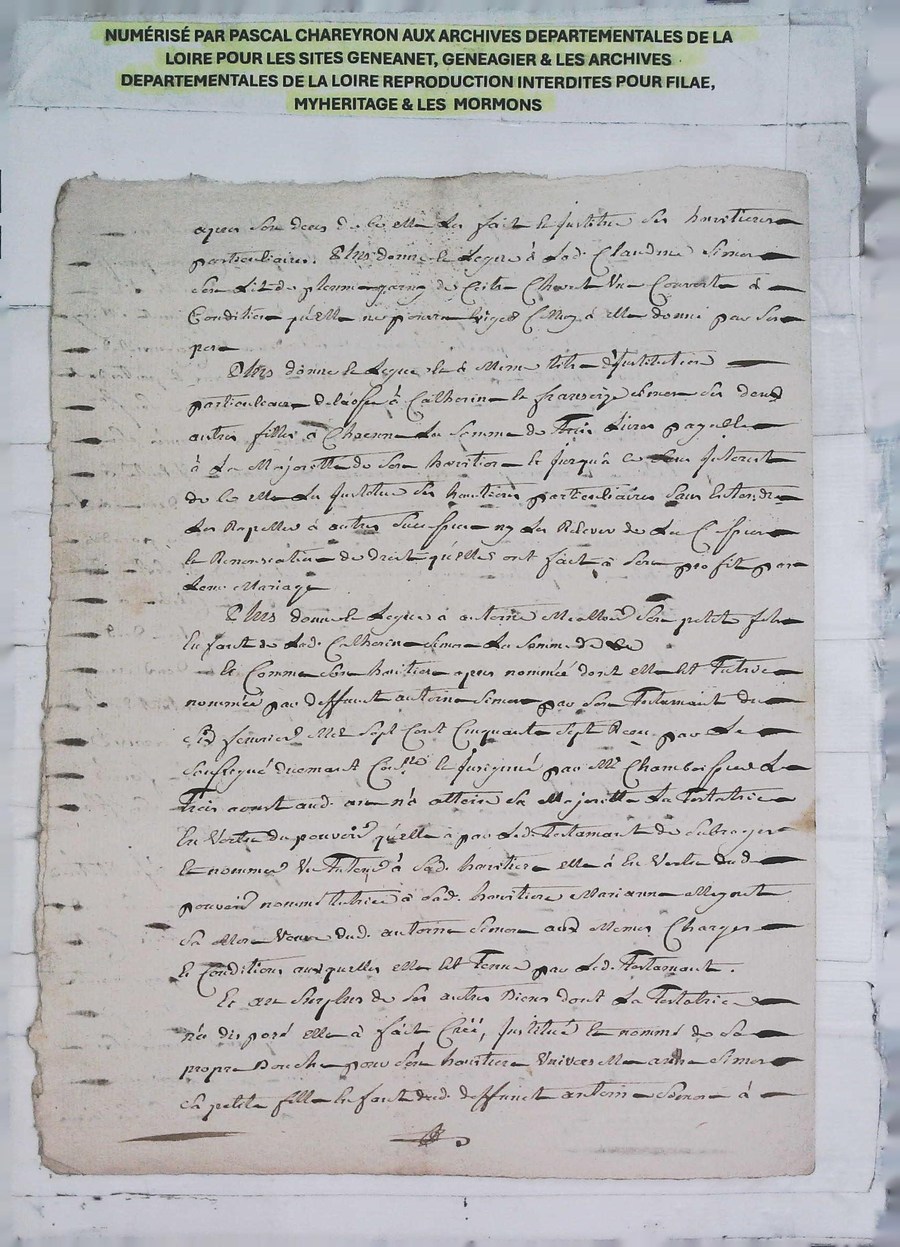 NUMÉRISÉ PAR PASCAL CHAREYRON AUX ARCHIVES DEPARTEMENTALES DE LA
LOIRE POUR LES SITES GENEANET, GENEAGIER & LES ARCHIVES
DEPARTEMENTALES DE LA LOIRE REPRODUCTION INTERDITES POUR FILAE,
MYHERITAGE & LES MORMONS
apres son deces de ce elle les fait et Institue ses heritieres
particuliaires. Plus donne et Legue à Lad. Claudine Simon
son Lit de plume garny de Couverte à
Condition qu'elle ne poura Exiger Celluy à elle donné par son
pere
Plus donne et Legue et à Meme titre d'Institution
particuliaire à Catherine et franseize Simon ses deux
autres filles à Chacune La somme de Trois Livres payable
à La Majoritté de son heritiere et Jusqu'à ce sans Interest
de ce elle Les Institue ses heritieres particuliaires sans Entendre
Les Rapeller à autres sucession ny Les Relever de La Cession
et Renonciation de droit qu'elles ont fait à son profit par
Leur Mariage
Plus donne et Legue à antoine son petit fils
Enfant de Lad. Catherine Simon La somme de
Et Comme son heritiere apres nommée dont elle Est Tutrice
nommée par deffunct antoine Simon par son Testamant du
fevrier Mil Sept Cent Cinquante Sept Receu par Le
soussigné duemant Conlé et Insignué par Me Chambois Le
Trois aoust aud. an n'a atteint sa Majoritté La Testatrice
En Vertu du pouvoir qu'elle à par Led. Testamant de subroger
et nommer Un Tuteur à Sad. heritiere elle à En Vertu dud.
pouvoir nommé tutrice à Sad. heritiere Marianne Meynet
sa Mere Veuve dud. antoine Simon aux Memes Charges
et Conditions auxquelles elle Est Tenue par Led. Testamant.
Et au Surplus de ses autres Biens dont La Testatrice
n'a disposé elle à fait Créé, Institué et nommé de sa
propre Bouche pour son heritiere Universelle anne Simon
sa petite fille Enfant dud. deffunct antoine Simon à